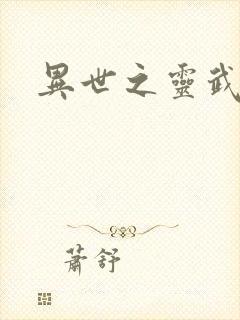 異世之靈武
蕭舒